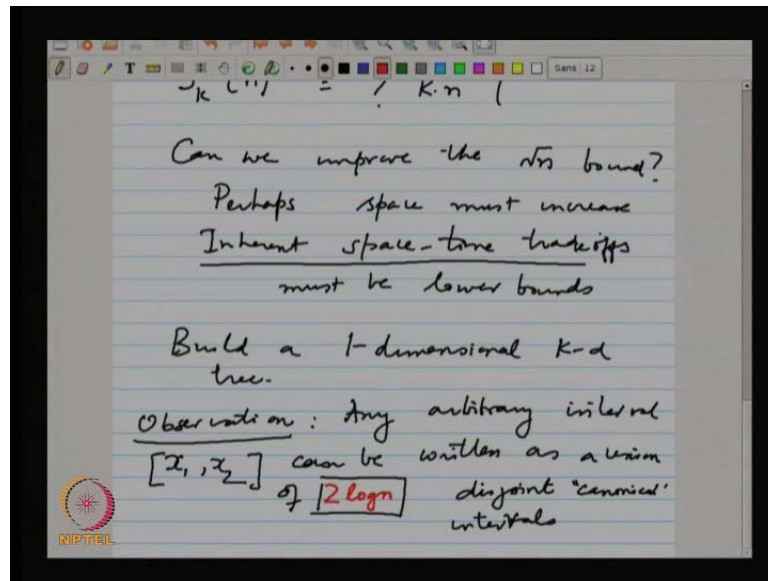 Sans 12
Can we improve the √n bound?
Perhaps space must increase
Inherent space-time tradeoffs
must be lower bounds
Build a 1-dimensional K-d
tree.
Observation: Any arbitrary interval
[x₁, x₂] can be written as a union
of 2 logn disjoint "canonical"
intervals
NPTEL